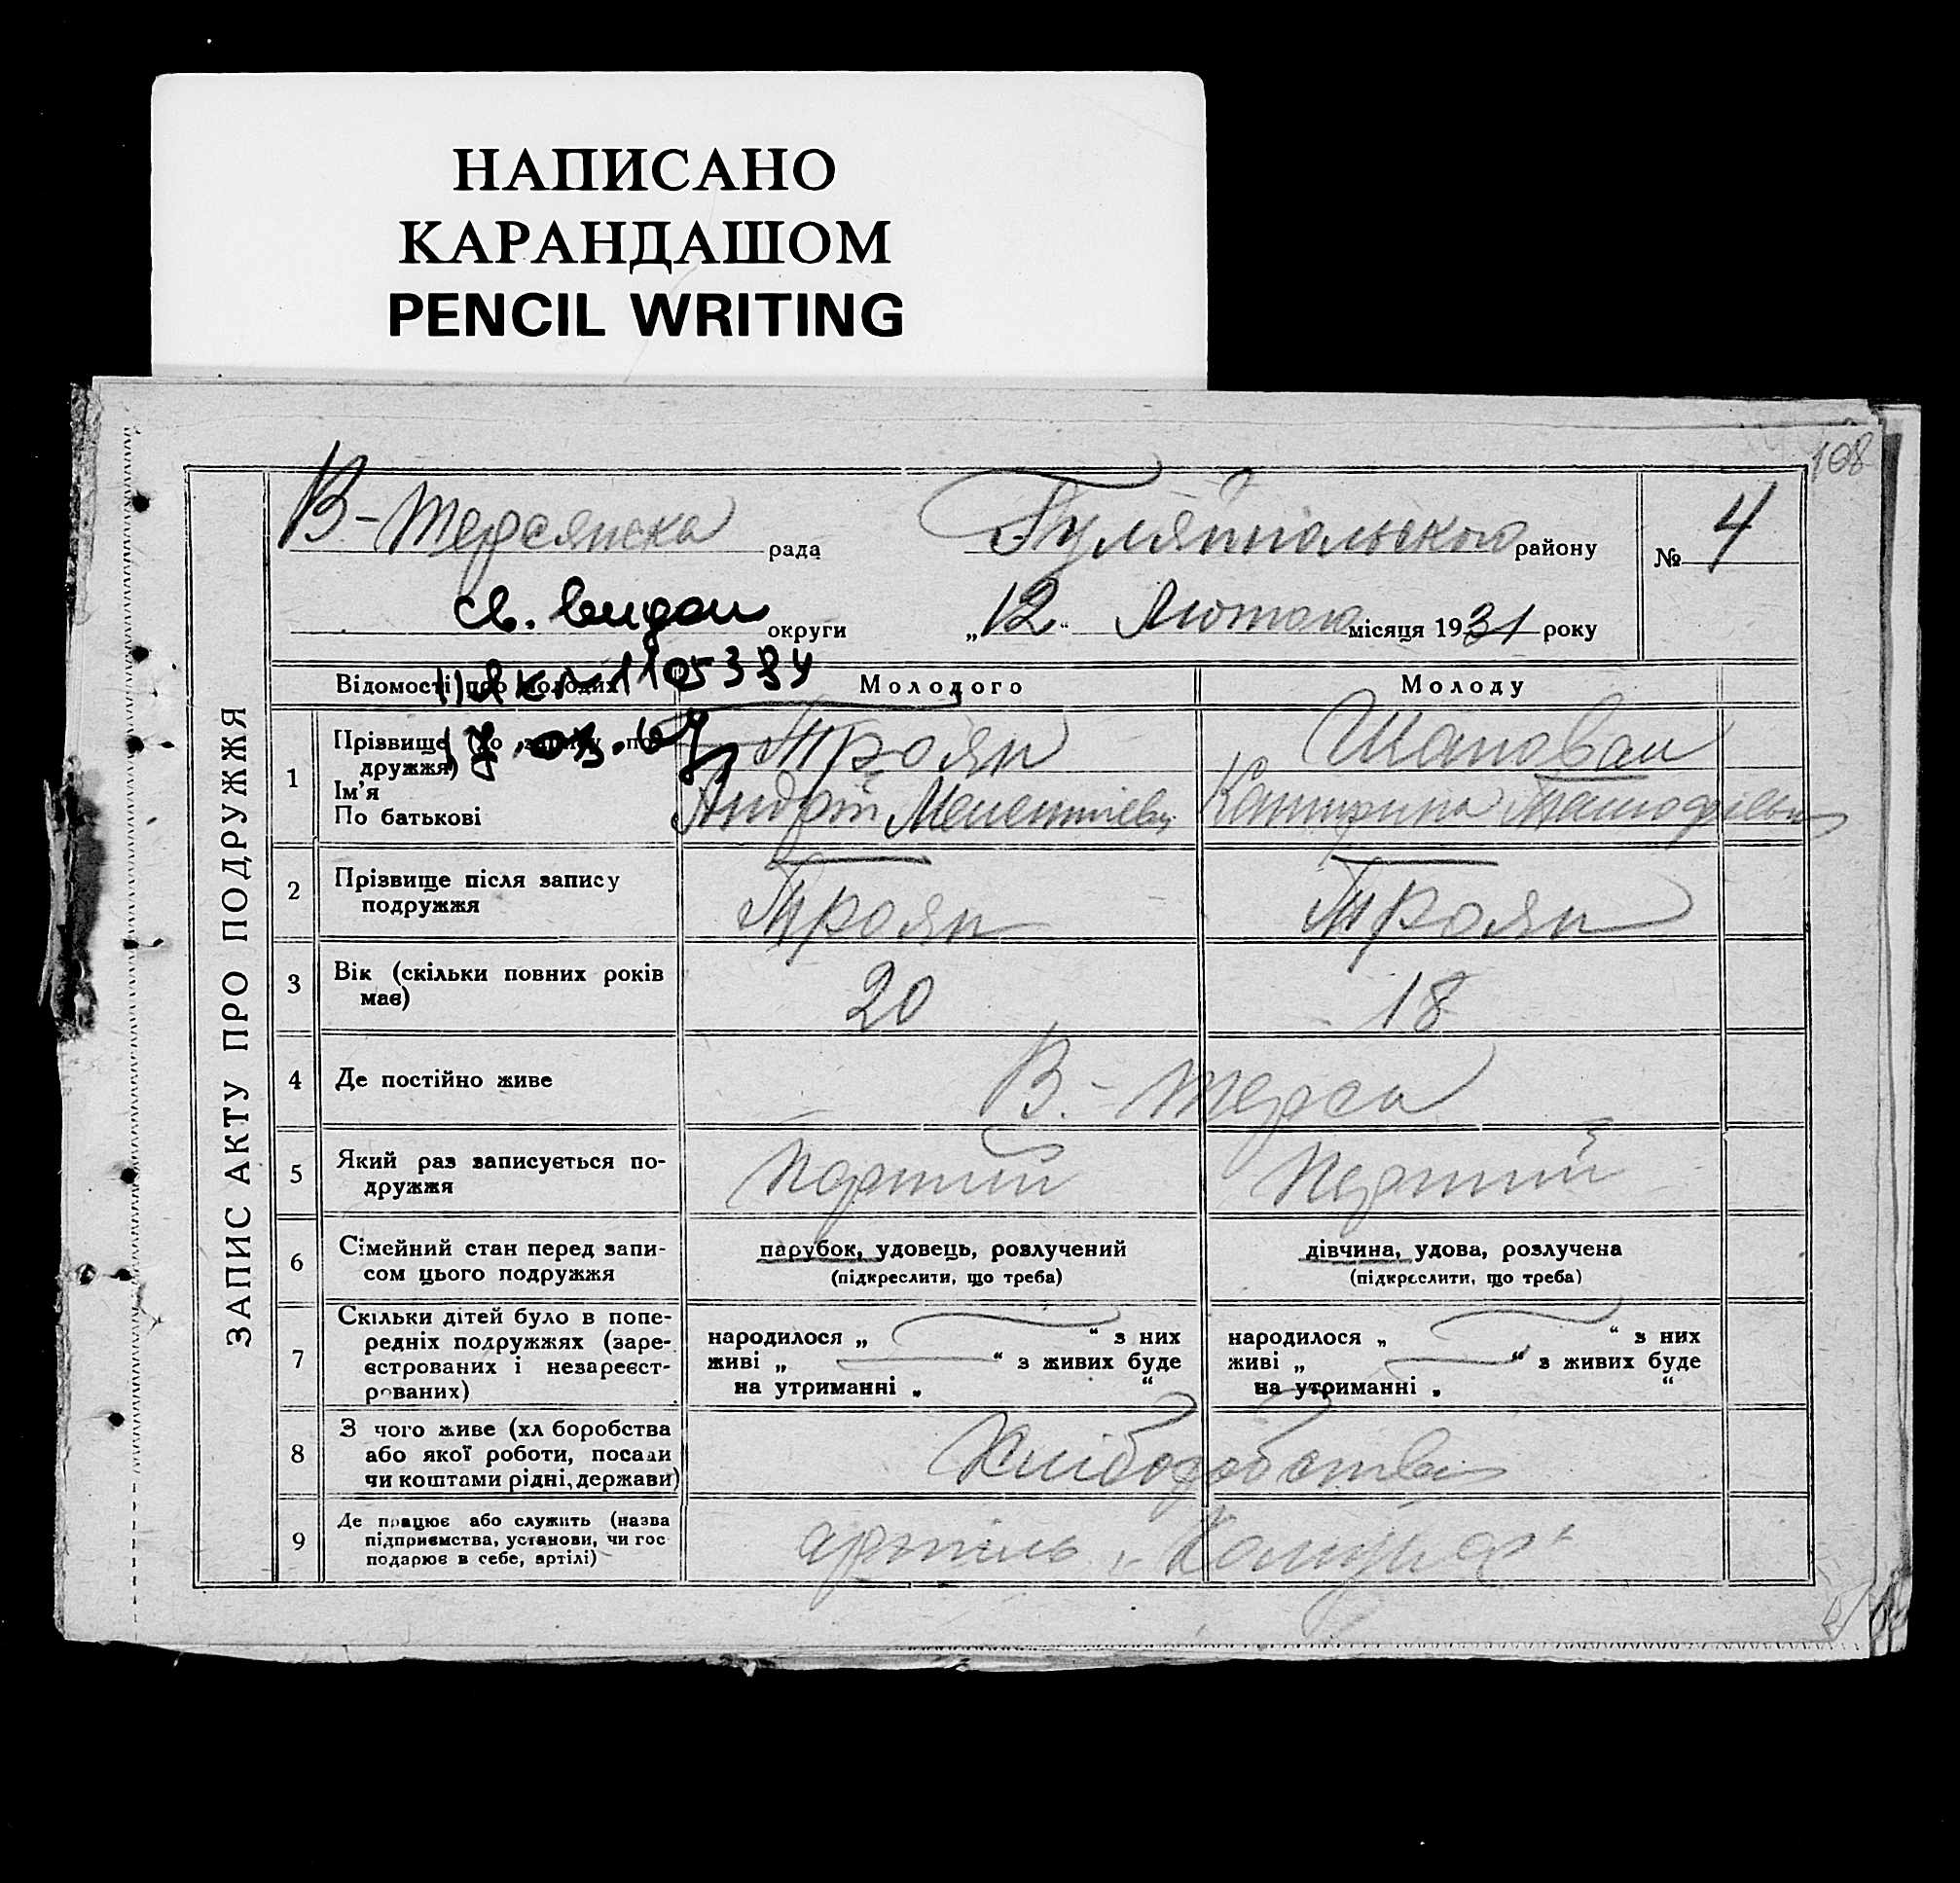 НАПИСАНО
КАРАНДАШОМ
PENCIL WRITING
108
В-Терсянска рада Гуляйпольського району № 4
св. видан округи „12“ Лютого місяця 1931 року
Відомості про молодих Молодого Молоду
ЗАПИС АКТУ ПРО ПОДРУЖЖЯ
1 Прізвище (до запису по-
дружжя) Троян Шаповал
Ім'я
По батькові Андрій Катерина
2 Прізвище після запису
подружжя Троян Троян
3 Вік (скільки повних років
має) 20 18
4 Де постійно живе В.-Терса
5 Який раз записується по-
дружжя Перший Перший
6 Сімейний стан перед запи-
сом цього подружжя
парубок, удовець, розлучений дівчина, удова, розлучена
(підкреслити, що треба) (підкреслити, що треба)
7 Скільки дітей було в попе-
редніх подружжях (заре-
єстрованих і незареєст-
рованих)
народилося „ “ з них народилося „ “ з них
живі „ “ з живих буде живі „ “ з живих буде
на утриманні „ “ на утриманні „ “
8 З чого живе (хліборобства
або якої роботи, посади
чи коштами рідні, держави)
9 Де працює або служить (назва
підприємства, установи, чи гос
подарює в себе, артілі) артіль